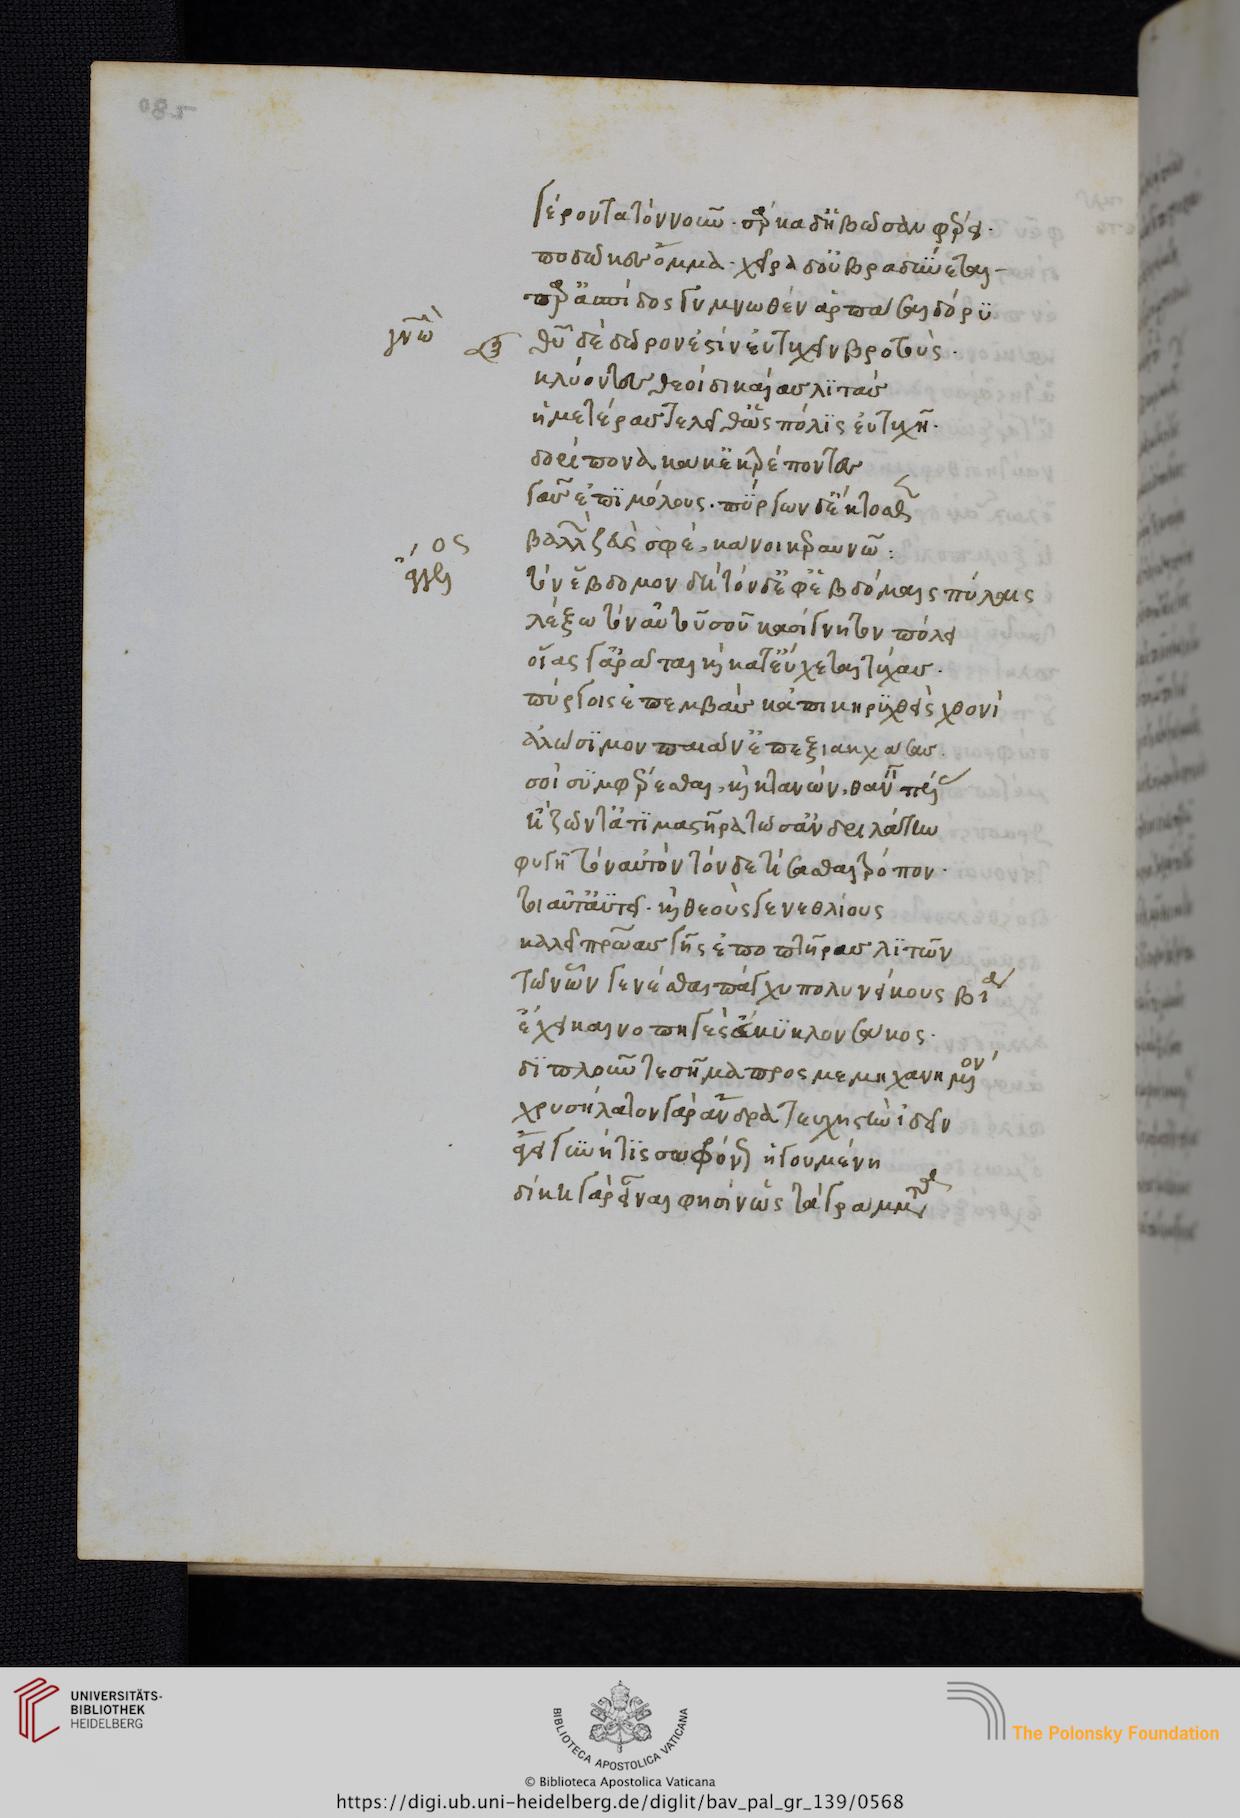 γέροντα τὸν νοῦν· σάρκα δ' ἡβῶσαν φέρει·
ποδῶκες ὄμμα· χεῖρα δ' οὐ βραδύνεται
παρ' ἀσπίδος γυμνωθὲν ἁρπάσαι δόρυ
γνώ
θεοῦ δὲ δῶρόν ἐστιν εὐτυχεῖν βροτούς.
κλύοντες θεοὶ δικαίας λιτὰς
ἡμετέρας τελεῖθ' ὡς πόλις εὐτυχῇ·
δορίπονα κακὰ ἐκτρέποντες
γᾶς ἐπιμόλους. πύργων δ' ἔκτοθεν
βαλὼν ζεύς σφε κάνοι κεραυνῷ:
ἄγγελος
τὸν ἕβδομον δὴ τόνδ' ἐφ' ἑβδόμαις πύλαις
λέξω τὸν αὐτοῦ σοῦ κασίγνητον πόλει
οἵας γ' ἀρᾶται καὶ κατεύχεται τύχας.
πύργοις ἐπεμβὰς κἀπικηρυχθεὶς χθονὶ
ἁλώσιμον παιᾶν' ἐπεξιακχάσας.
σοὶ συμφέρεσθαι, καὶ κτανὼν θανεῖν πέλας
ἢ ζῶντ' ἀτιμαστῆρα τὼς ἀνδρηλάτων
φυγῇ τὸν αὐτὸν τόνδε τίσασθαι τρόπον.
τοιαῦτ' ἀυτεῖ· καὶ θεοὺς γενεθλίους
καλεῖ πατρῴας γῆς ἐποπτῆρας λιτῶν
τῶν ὧν γενέσθαι πάγχυ πολυνείκους βία
ἔχει καινοπηγὲς εὔκυκλον σάκος·
διπλοῦν τε σῆμα προσμεμηχανημένον
χρυσήλατον γὰρ ἄνδρα τευχηστὴν ἰδεῖν
ἄγει γυνή τις σωφρόνως ἡγουμένη
δίκη γὰρ εἶναί φησιν ὡς τὰ γράμματα
UNIVERSITÄTS-
BIBLIOTHEK
HEIDELBERG
BIBLIOTECA APOSTOLICA VATICANA
The Polonsky Foundation
© Biblioteca Apostolica Vaticana
https://digi.ub.uni-heidelberg.de/diglit/bav_pal_gr_139/0568